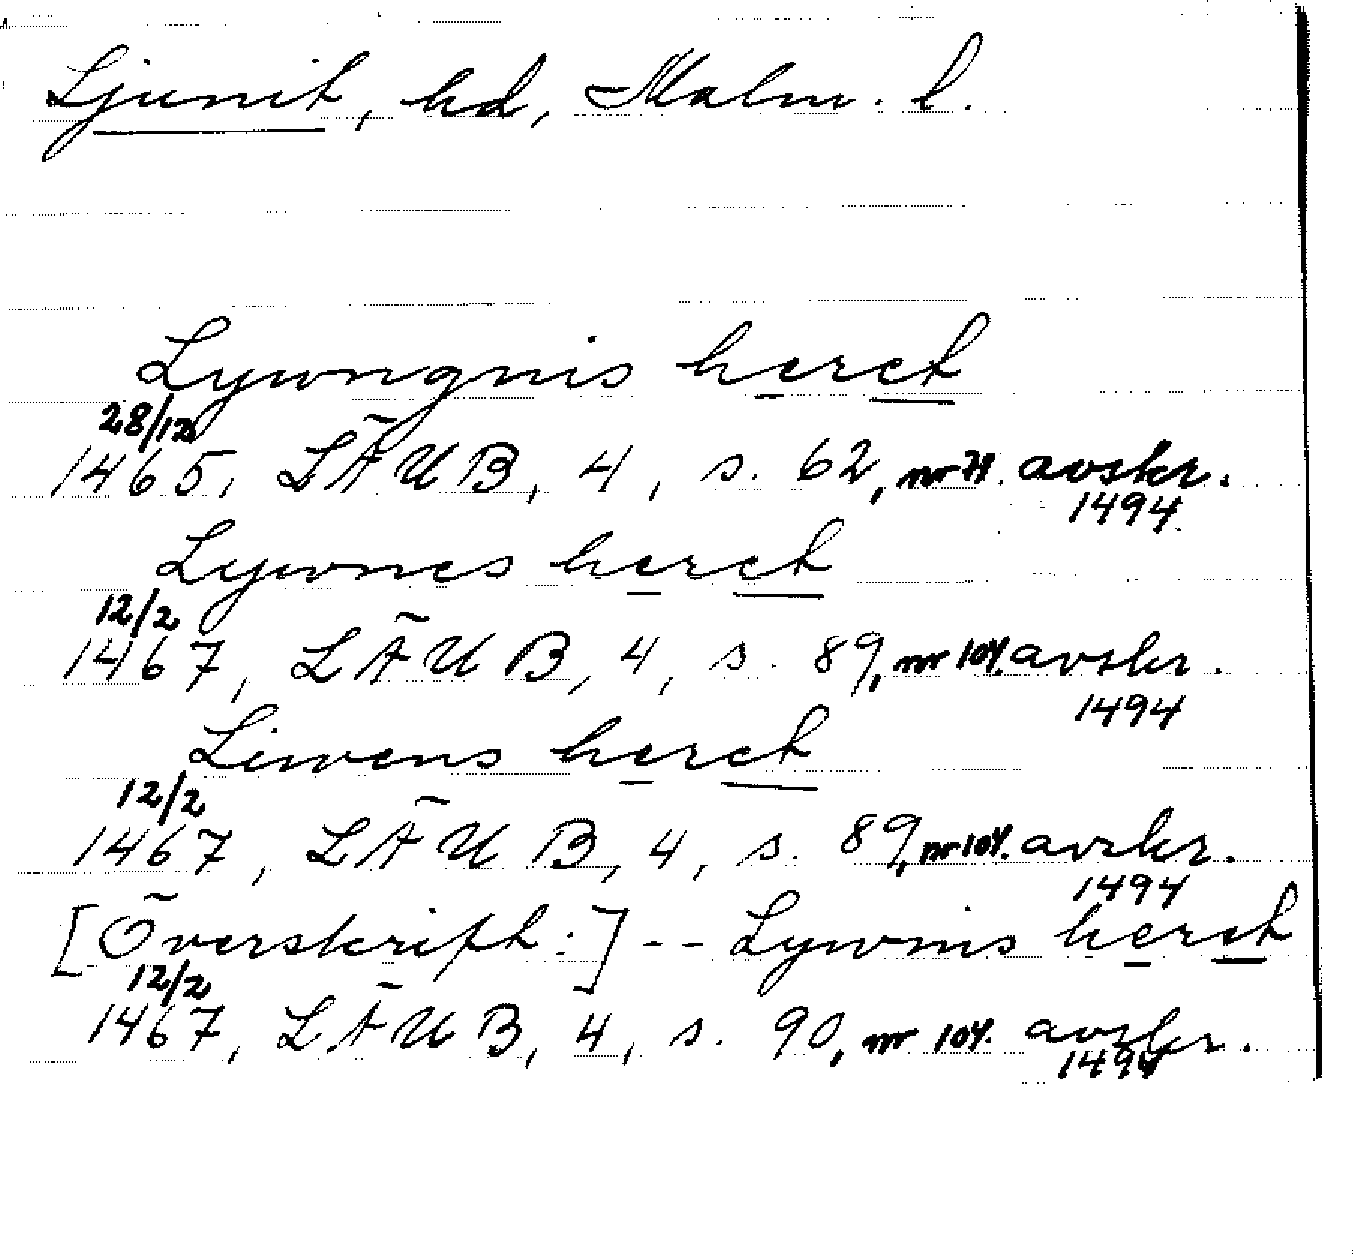 Ljunit, hd, Malm. l.
Lywngnis heret
28/12
1465, LÄUB, 4, s. 62, nr 71. avskr.
1494
Lywnes heret
12/2
1467, LÄUB, 4, s. 89, nr 104. avskr.
1494
Liwens heret
12/2
1467, LÄUB, 4, s. 89, nr 104. avskr.
1494
[Överskrift:] -- Lywnis heret
12/2
1467, LÄUB, 4, s. 90, nr 104. avskr.
1494